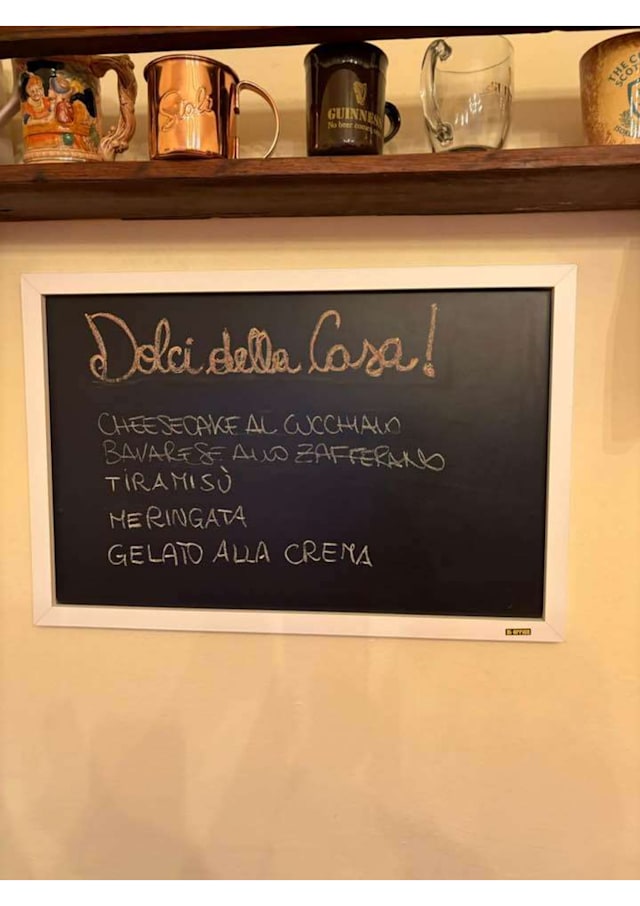 Stoli
GUINNESS
THE
Dolci della Casa!
CHEESECAKE AL CUCCHIAIO
BAVARESE ALLO ZAFFERANO
TIRAMISÙ
MERINGATA
GELATO ALLA CREMA